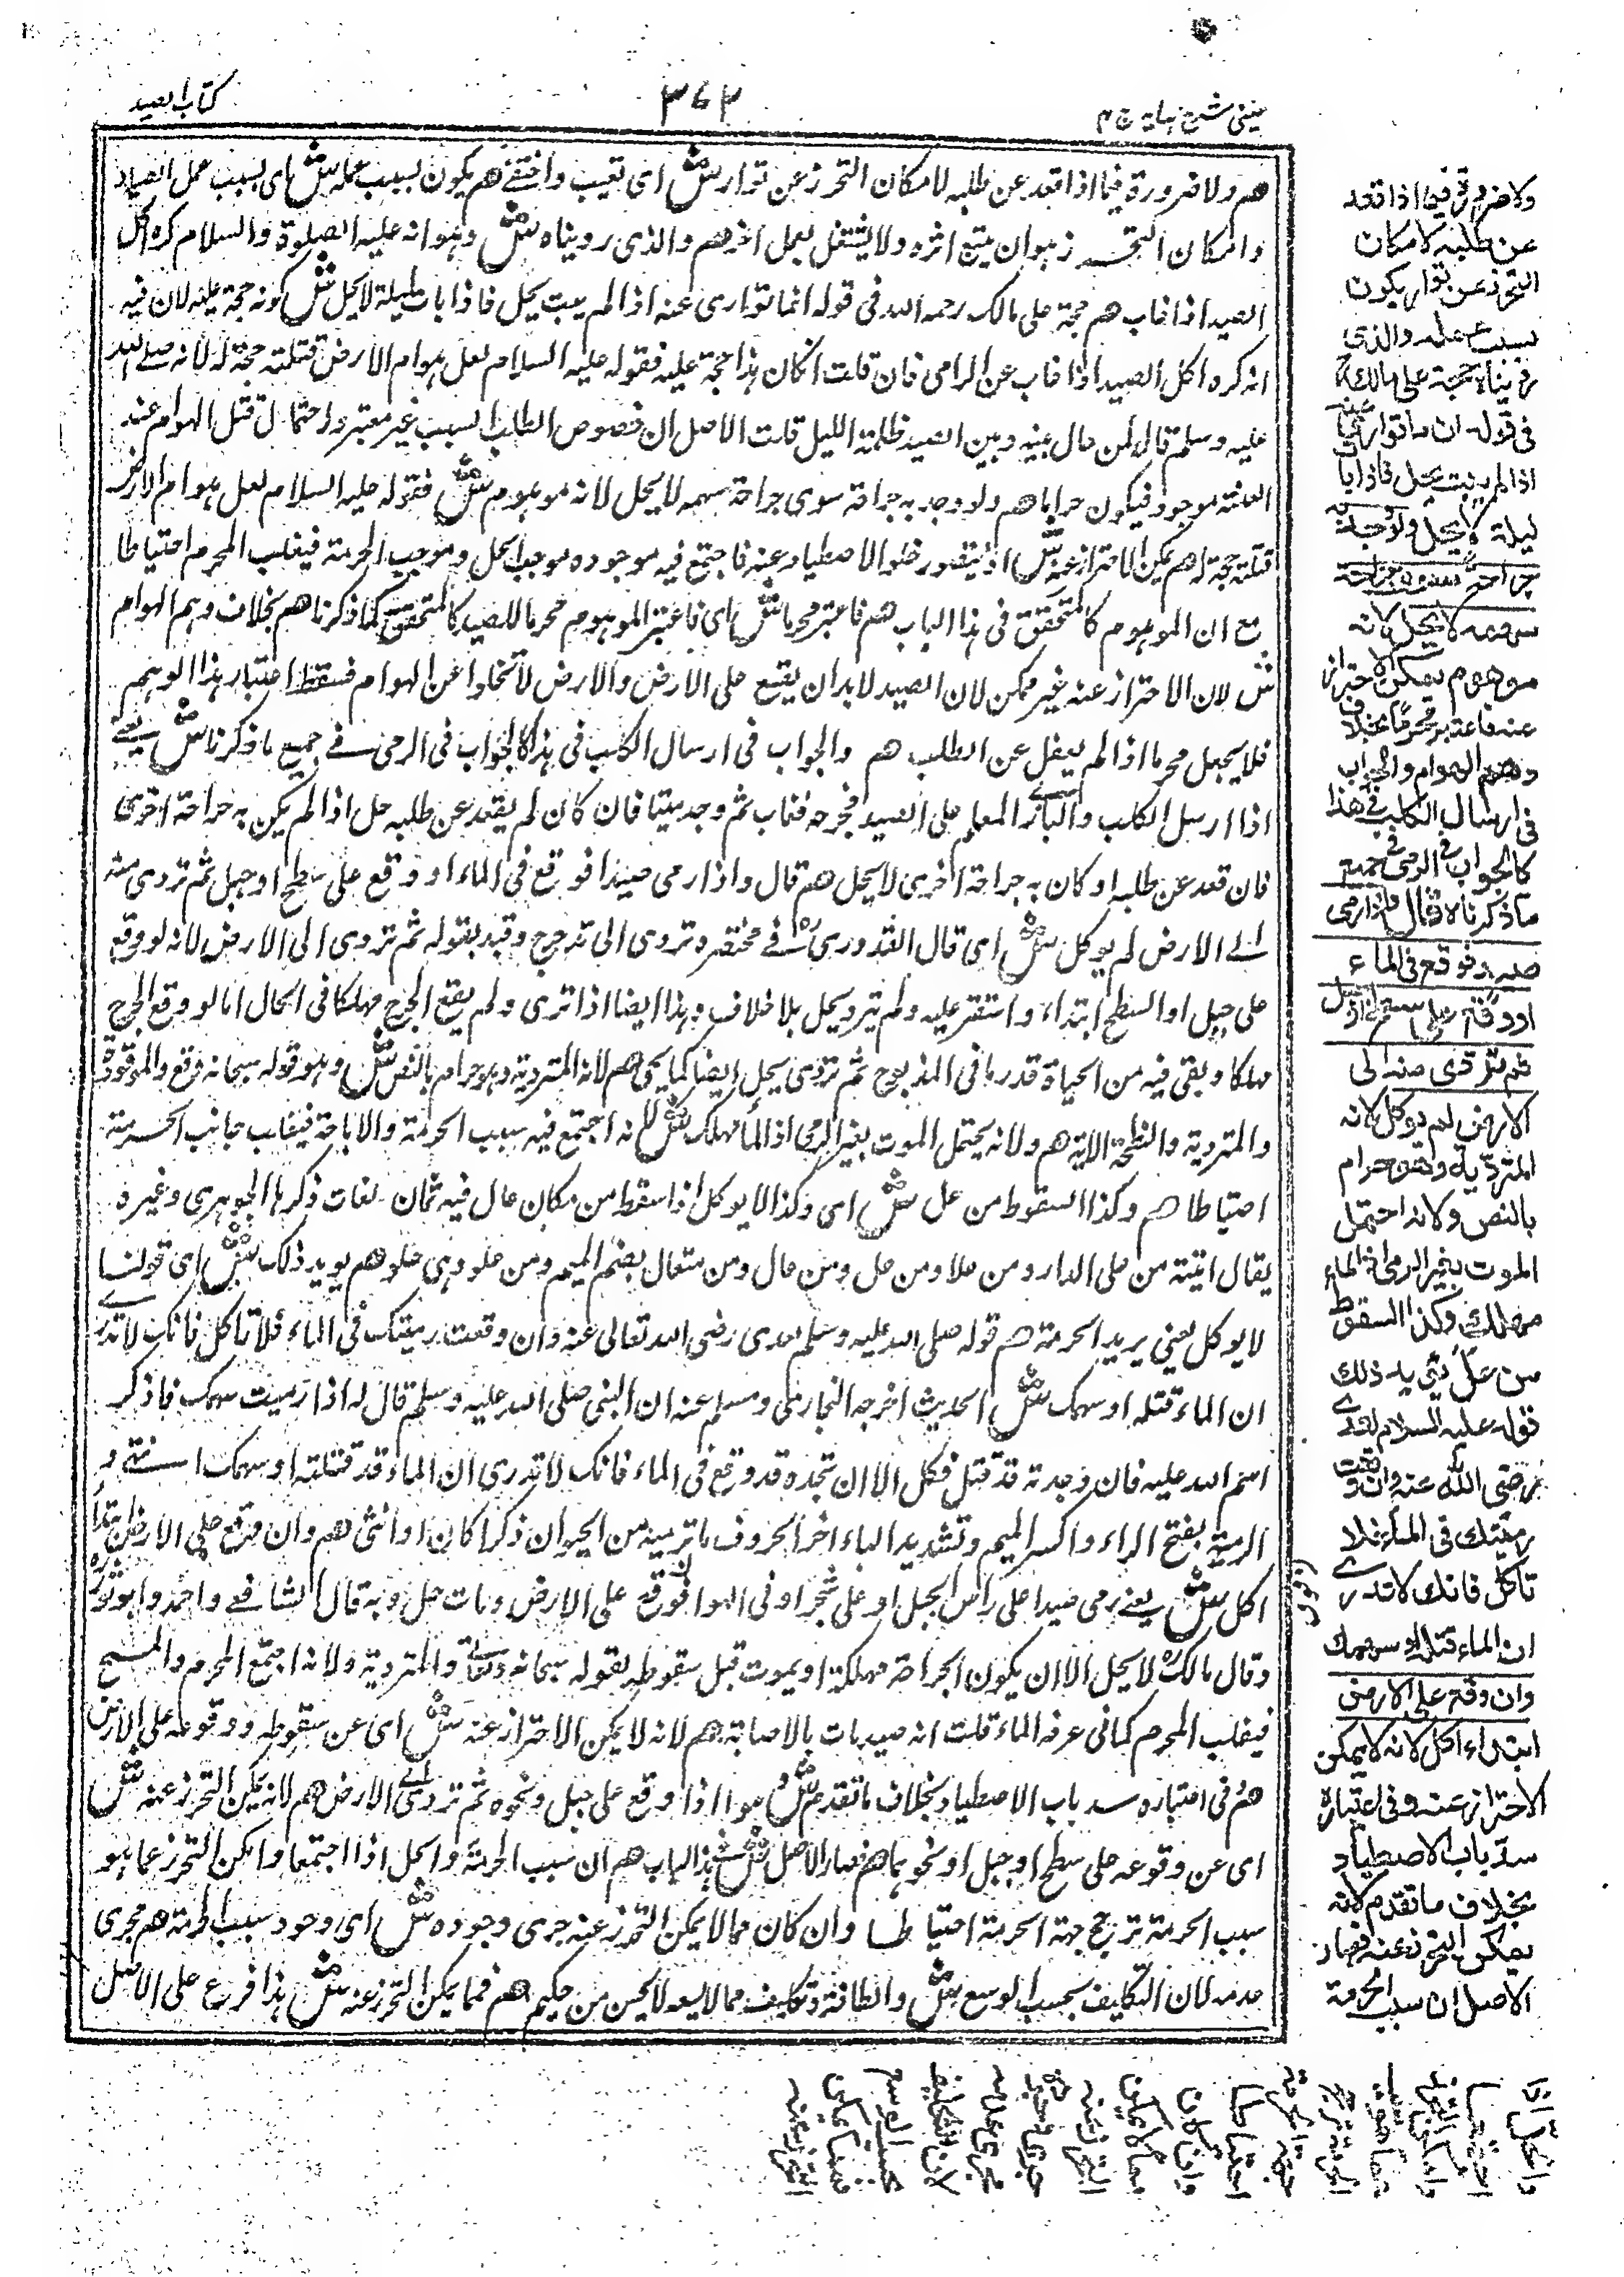 عینی شرح ہدایہ ج م
٣٧٣
کتاب الصید
هم ولا ضرورة فیما اذا قعد عن طلبه لامکان التحرز عن توار ش ای تغیب واختفے هم یکون بسبب عمله ش ای بسبب عمل الصیاد
وامکان التحرز هو ان یتبع اثره ولا یشتغل بعمل اخر هم والذی رویناه ش وهو انه علیه الصلوة والسلام کره اکل
الصید اذا غاب هم حجة علی مالک رحمه الله فی قوله انما تواری عنه اذا لم یبت یحل فاذا بات لیلة لا یحل ش کونه حجة علیه لان فیه
انه کره اکل الصید اذا غاب عن الرامی فان قلت ان کان هذا حجة علیه فقوله علیه السلام لعل هوام الارض قتلته حجة له لانه صلے الله
علیه وسلم قال لمن حال بینه وبین الصید ظلمة اللیل قلت الاصل ان خصوص الطلب السبب غیر معتبر واحتمال قتل الهوام عند
الغیبة موجود فیکون حراما هم ولو وجد به جراحة سوی جراحة سهمه لا یحل لانه موهوم ش فقوله علیه السلام لعل هوام الارض
قتلته حجة له هم یمکن الاحتراز عنه ش اذ یتصور خلو الاصطیاد عنه فاجتمع فیه موجوده موجب الحل وموجب الحرمة فیغلب المحرم احتیاطا
مع ان الموهوم کالمتحقق فی هذا الباب هم فاعتبر محرما ش ای فاعتبر الموهوم محرما للصید کالمتحقق کما ذکرنا هم بخلاف وهم الهوام
ش لان الاحتراز عنه غیر ممکن لان الصید لا بد ان یقع علی الارض والارض لا تخلوا عن الهوام فسقط اعتبار هذا الوهم
فلا یجعل محرما اذا لم یغفل عن الطلب هم والجواب فی ارسال الکلب فی هذا کالجواب فی الرمی فے جمیع ما ذکرنا ش یعنے
اذا ارسل الکلب والباز المعلم علی الصید فجرحه فغاب ثم وجد میتا فان کان لم یقعد عن طلبه حل اذا لم یکن به جراحة اخری
فان قعد عن طلبه او کان به جراحة اخری لا یحل هم قال واذا رمی صیدا فوقع فی الماء او وقع علی سطح او جبل ثم تردی منه
الے الارض لم یوکل ش ای قال القدوری فے مختصره وتردی الی تدحرج وقید بقوله ثم تردی الی الارض لانه لو وقع
علی جبل او السطح ابتداء واستقر علیه ولم یترد یحل بلا خلاف وهذا ایضا اذا تردی ولم یقع الجرح مهلکا فی الحال اما لو وقع الجرح
مهلکا وبقی فیه من الحیاة قدر ما فی المذبوح ثم تردی یحل ایضا کما یجئ هم لانه المتردیة وهو حرام بالنص ش وهو قوله سبحانه وتع والموقوذة
والمتردیة والنطیحة الایة هم ولانه یحتمل الموت بغیر الرمی اذ الماء مهلک ش لانه اجتمع فیه سبب الحرمة والاباحة فیغلب جانب الحرمة
احتیاطا هم وکذا السقوط من عل ش ای وکذا لا یوکل اذا سقط من مکان عال فیه ثمان لغات ذکرها الجوهری وغیره
یقال اتیته من علی الدار ومن علا ومن عل ومن عال ومن متعال بضم المیم ومن علو وهی علو هم یوید ذلک ش ای قولنا
لا یوکل یعنی یرید الحرمة هم قوله صلی الله علیه وسلم لعدی رضی الله تعالی عنه وان وقعت رمیتک فی الماء فلا تاکل فانک لا تدری
ان الماء قتله او سهمک ش الحدیث اخرجه البخاری ومسلم عنه ان النبی صلی الله علیه وسلم قال له اذا رمیت سهمک فاذکر
اسم الله علیه فان وجدته قد قتل فکل الا ان تجده قد وقع فی الماء فانک لا تدری ان الماء قد قتلته او سهمک
الرمیة بفتح الراء واکسر المیم وتشدید الیاء اخر الحروف ما ترمیه من الحیوان ذکرا کان او انثی هم وان وقع علی الارض ابتداء
اکل ش یعنے رمی صیدا علی راس الجبل او علی شجر او فی الهواء فوقع علی الارض ومات حل وبه قال الشافعے واحمد وابو ثور
وقال مالک لا یحل الا ان یکون الجراحة مهلکة او یموت قبل سقوطه بقوله سبحانه وتعالے والمتردیة ولانه اجتمع المحرم والمبیح
فیغلب المحرم کما فی عرفه الماء قلت انه صید بات بالاصابة هم لانه لا یمکن الاحتراز عنه ش ای عن سقوطه ووقوعه علی الارض
هم وفی اعتباره سد باب الاصطیاد بخلاف ما تقدم ش هو اذا وقع علی جبل ونحوه ثم تردی الے الارض هم لانه یمکن التحرز عنه ش
ای عن وقوعه علی سطح او جبل او نحوهما هم فصار الاصل ش فے هذا الباب هم ان سبب الحرمة والحل اذا اجتمعا وامکن التحرز عما هو
سبب الحرمة ترجح جهة الحرمة احتیاطا وان کان مما لا یمکن التحرز عنه جری وجوده ش ای وجود سبب الحرمة هم مجری
عدمه لان التکلیف بحسب الوسع ش والطاقة وتکلیف مما لا یسعه لا یحسن من حکیم هم فمما یمکن التحرز عنه ش هذا فرع علی الاصل
ولا ضرورة فیما اذا قعد
عن طلبه لامکان
التحرز عن توار یکون
بسبب عمله والذی
رویناه حجة علی مالک
فی قوله ان ما تواری عنه
اذا لم یبت یحل فاذا بات
لیلة لا یحل ولو وجد به
جراحة سوی جراحة
سهمه لا یحل لانه
موهوم یمکن الاحتراز
عنه فاعتبر محرما بخلاف
وهم الهوام والجواب
فی ارسال الکلب فی هذا
کالجواب فی الرمی فی جمیع
ما ذکرناه قال واذا رمی
صیدا فوقع فی الماء
او وقع علی سطح او جبل
ثم تردی منه الی
الارض لم یوکل لانه
المتردیة وهو حرام
بالنص ولانه احتمل
الموت بغیر الرمی اذ الماء
مهلک وکذا السقوط
من عل یؤیده ذلک
قوله علیه السلام لعدی
رضی الله عنه وان وقعت
رمیتک فی الماء فلا
تاکل فانک لا تدری
ان الماء قتله او سهمک
وان وقع علی الارض
ابتداء اکل لانه لا یمکن
الاحتراز عنه وفی اعتباره
سد باب الاصطیاد
بخلاف ما تقدم لانه
یمکن التحرز عنه فصار
الاصل ان سبب الحرمة
والحل اذا
اجتمعا
وامکن التحرز
عما هو سبب
الحرمة ترجح
جهة الحرمة
احتیاطا
وان کان
مما لا یمکن
التحرز عنه
جری وجوده
مجری عدمه
لان التکلیف
بحسب الوسع
فمما یمکن
التحرز عنه